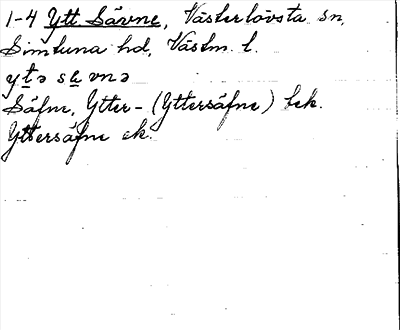 1-4 Ytt. Sävne, Västerlövsta sn,
Simtuna hd, Västm. l.
ytə sävnə
Säfne, Ytter- (Yttersäfne) bek.
Yttersäfne ek.